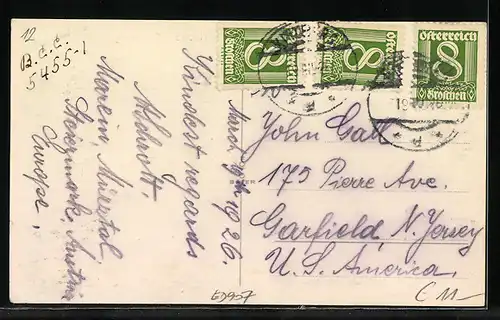 12
B.C.C.
5455-1
March 19th 1926.
Kindest regards
Alchrott.
Marein, Mürztal
Steiermark, Austria
Europe.
Österreich
8
Groschen
Österreich
8
Groschen
Österreich
8
Groschen
John Gall
175 Pierre Ave.
Garfield N. Jersey
U.S. America.
ED957
C 11-